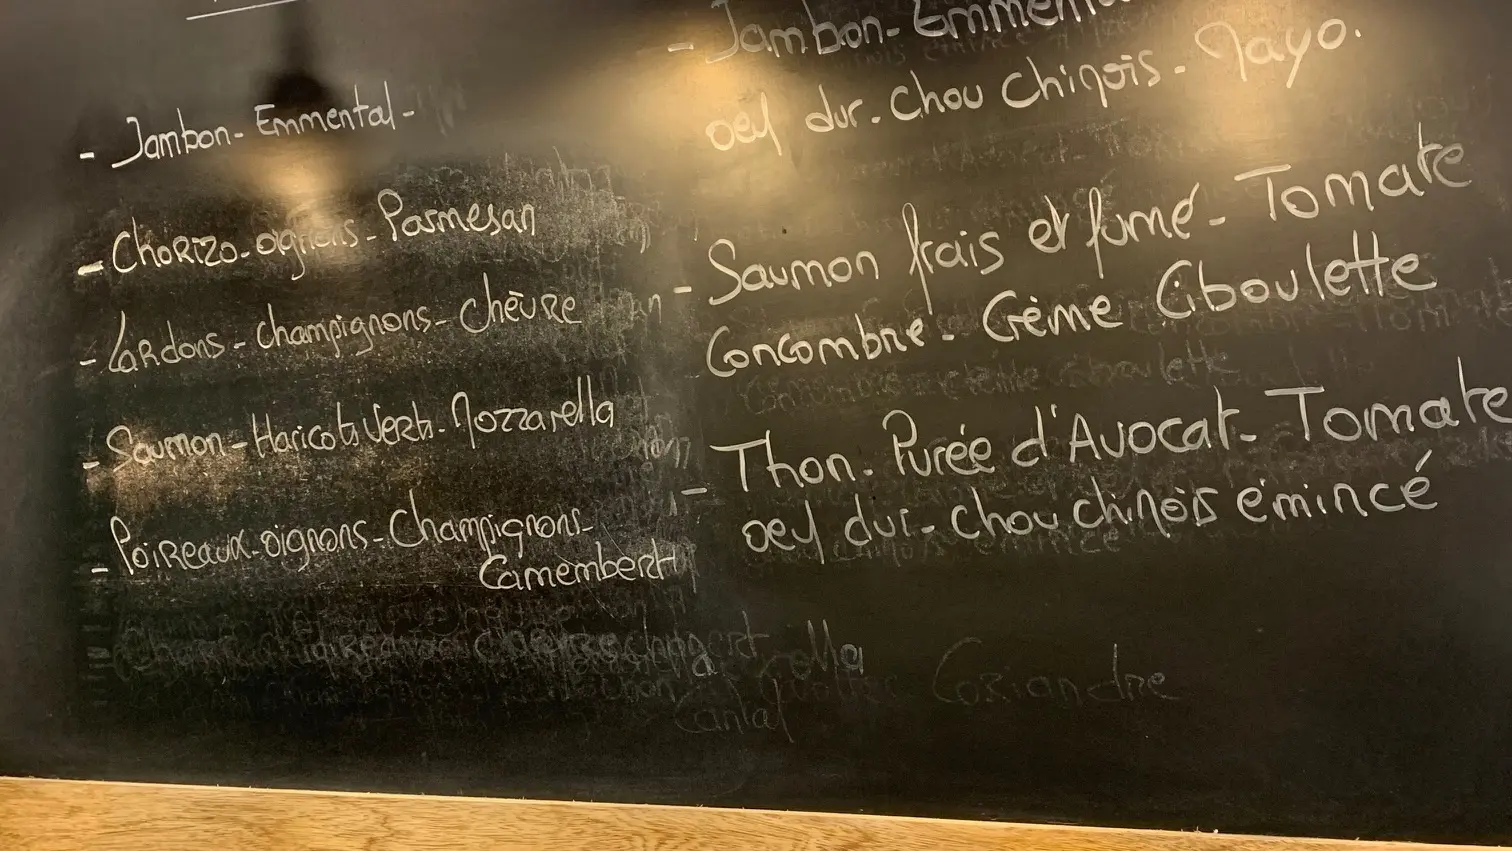 - Jambon - Emmental -
- Chorizo - oignons - Parmesan
- Lardons - champignons - chèvre
- Saumon - Haricots Verts - Mozzarella
- Poireaux - oignons - Champignons -
Camembert
Cantal
- Jambon - Emmental
oeuf dur - Chou Chinois - Mayo.
- Saumon frais et fumé - Tomate
Concombre - Crème Ciboulette
- Thon - Purée d'Avocat - Tomate
oeuf dur - chou chinois émincé
Coriandre